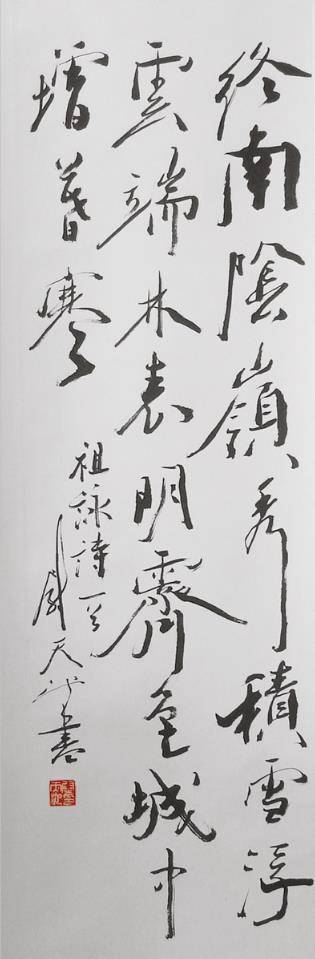 終南陰嶺秀積雪浮
雲端林表明霽色城中
增暮寒
祖詠詩一首
天書